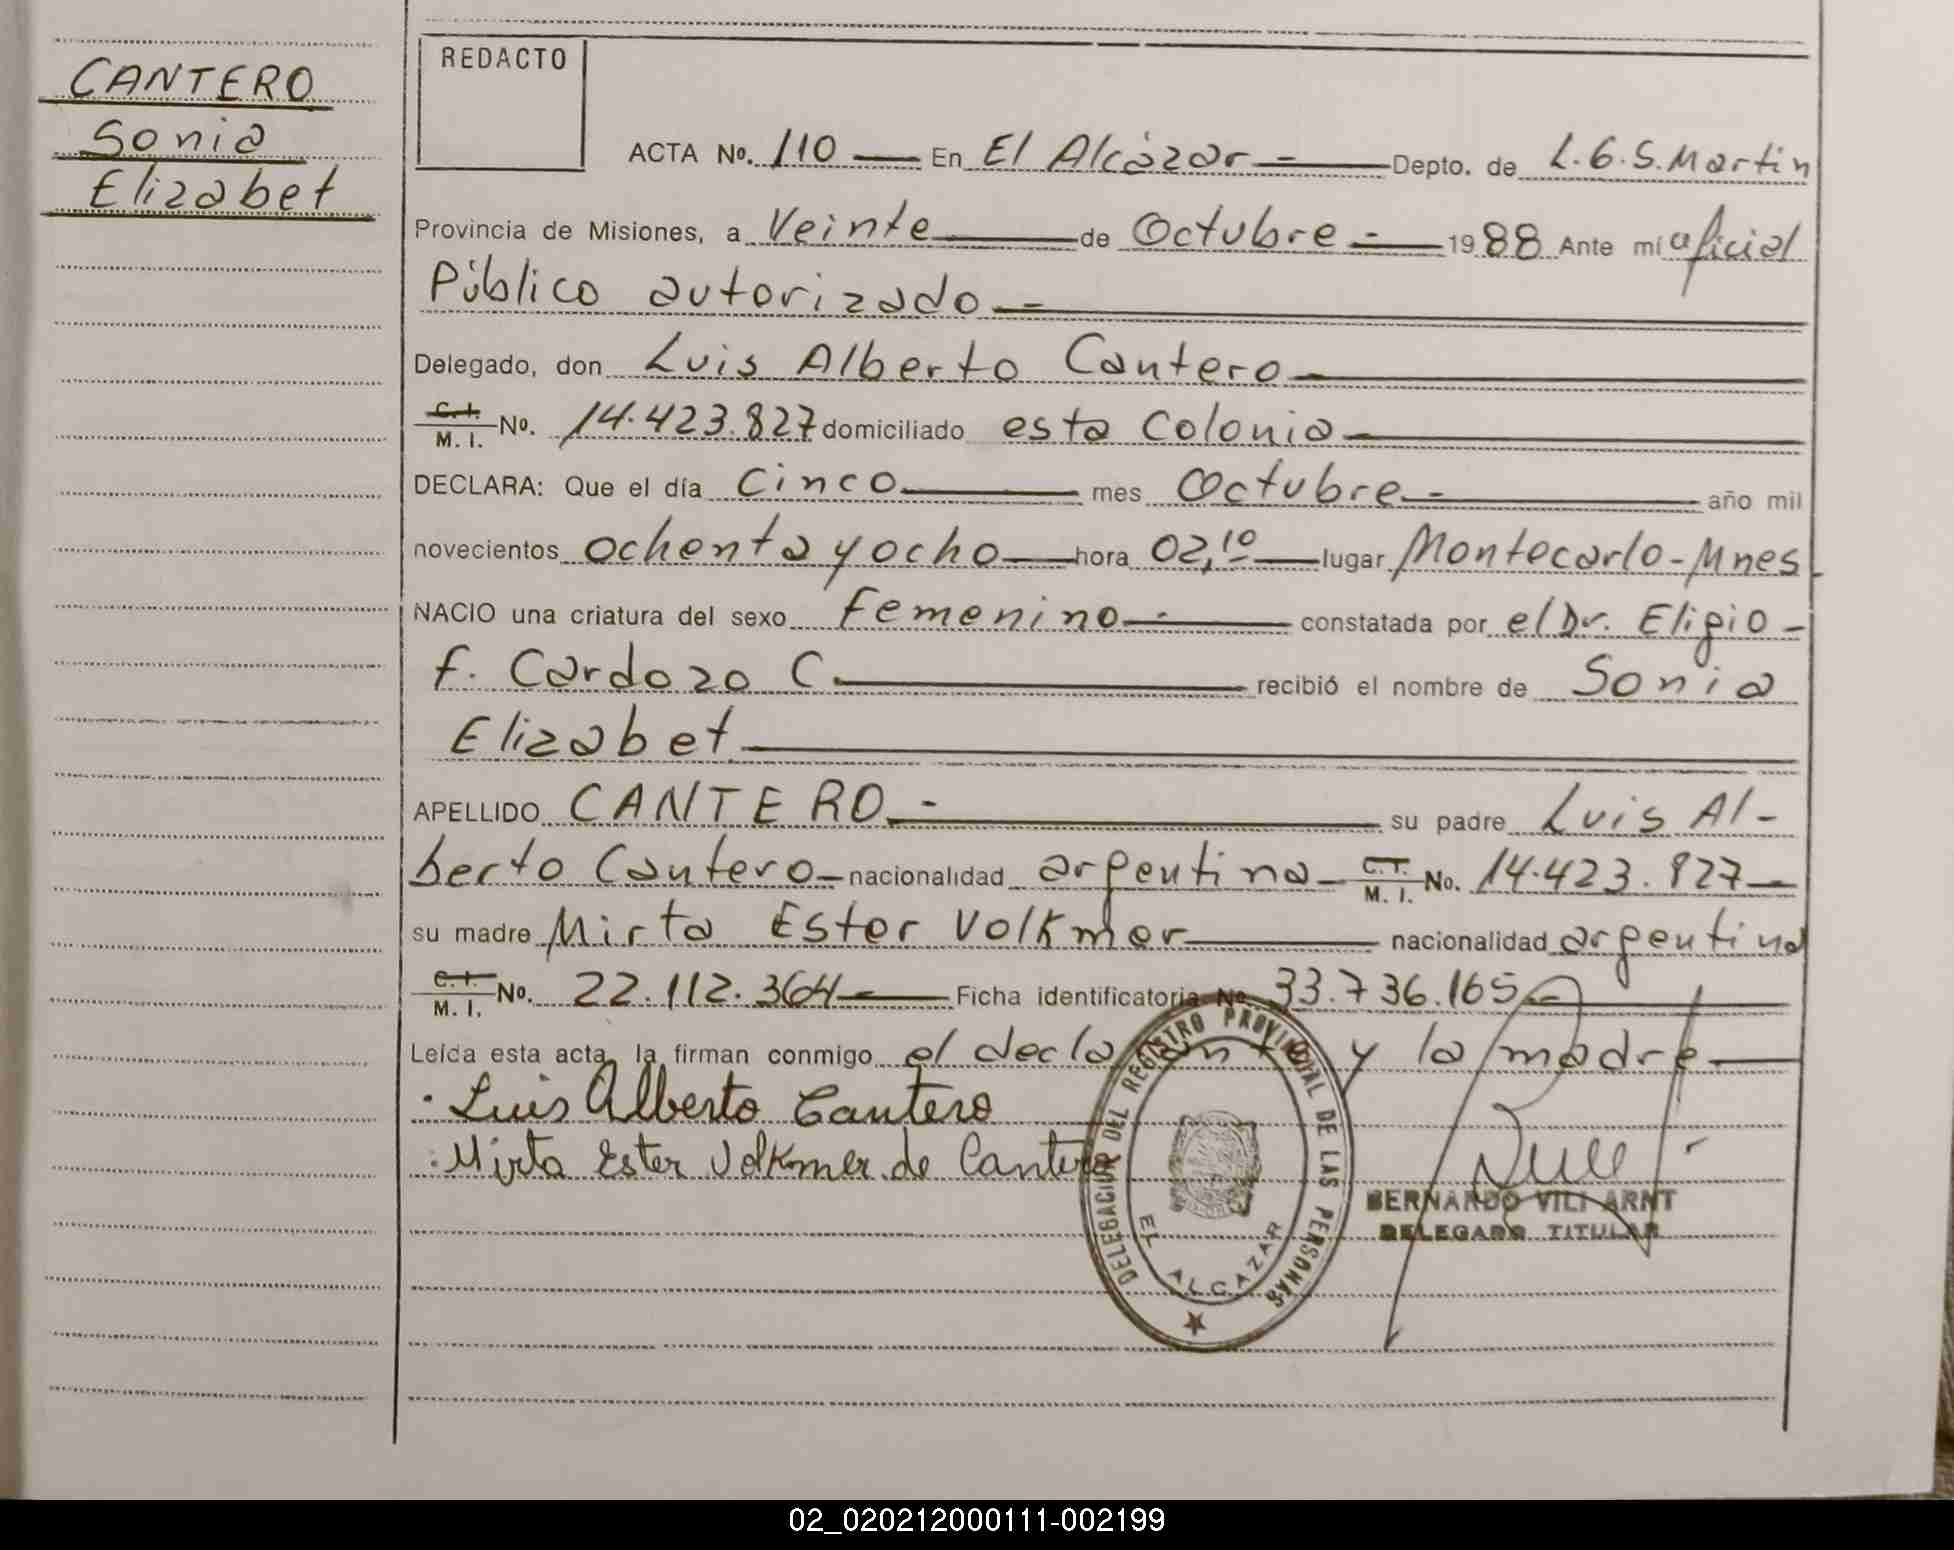 CANTERO
Sonia
Elizabet
REDACTO
ACTA No. 110 En El Alcázar Depto. de L.G.S. Martin
Provincia de Misiones, a Veinte de Octubre 1988 Ante mi oficial
Público autorizado
Delegado, don Luis Alberto Cantero
C.I. M.I. No. 14.423.827 domiciliado esta Colonia
DECLARA: Que el día Cinco mes Octubre año mil
novecientos ochenta y ocho hora 02,10 lugar Montecarlo-Mnes
NACIO una criatura del sexo Femenino constatada por el Dr. Eligio
F. Cardozo C. recibió el nombre de Sonia
Elizabet
APELLIDO CANTERO su padre Luis Al-
berto Cantero nacionalidad argentina C.I. M.I. No. 14.423.827
su madre Mirta Ester Volkmer nacionalidad argentina
C.I. M.I. No. 22.112.364 Ficha identificatoria No. 33.736.165
Leída esta acta, la firman conmigo el declarante y la madre
Luis Alberto Cantero
Mirta Ester Volkmer de Cantero
DELEGACION DEL REGISTRO PROVINCIAL DE LAS PERSONAS
EL ALCAZAR
BERNARDO VILI ARNT
DELEGADO TITULAR
02_020212000111-002199